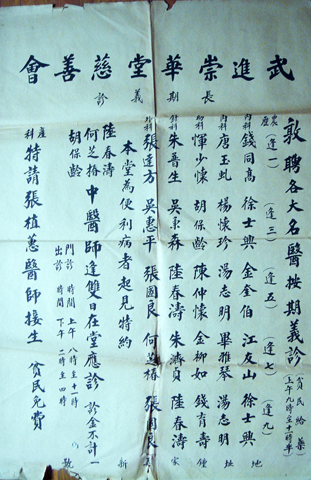 武進崇華堂慈善會
長期義診
敦聘各大名醫按期義診
貧民給藥
上午九時至十一時半
(逢一) (逢三) (逢五) (逢七) (逢九)
內科 錢同高 徐士興 金奎伯 江友山 徐士興
內科 唐玉虬 楊懷珍 湯志明 畢雅琴 湯志明
惲少懷 胡保齡 陳仲懷 金柳如 錢育壽
外科 朱普生 陸春濤 朱濟貞 陸春濤
張達方 吳惠平 張國良 何芝椿 張國良
本堂為便利病者起見特約
陸春濤
何芝椿 中醫師逢雙日在堂應診 診金不計
胡保齡
門診 時間 上午 八時至十一時
出診 時間 下午 二時至四時
產科 特請張植蕙醫師接生 貧民免費
地址